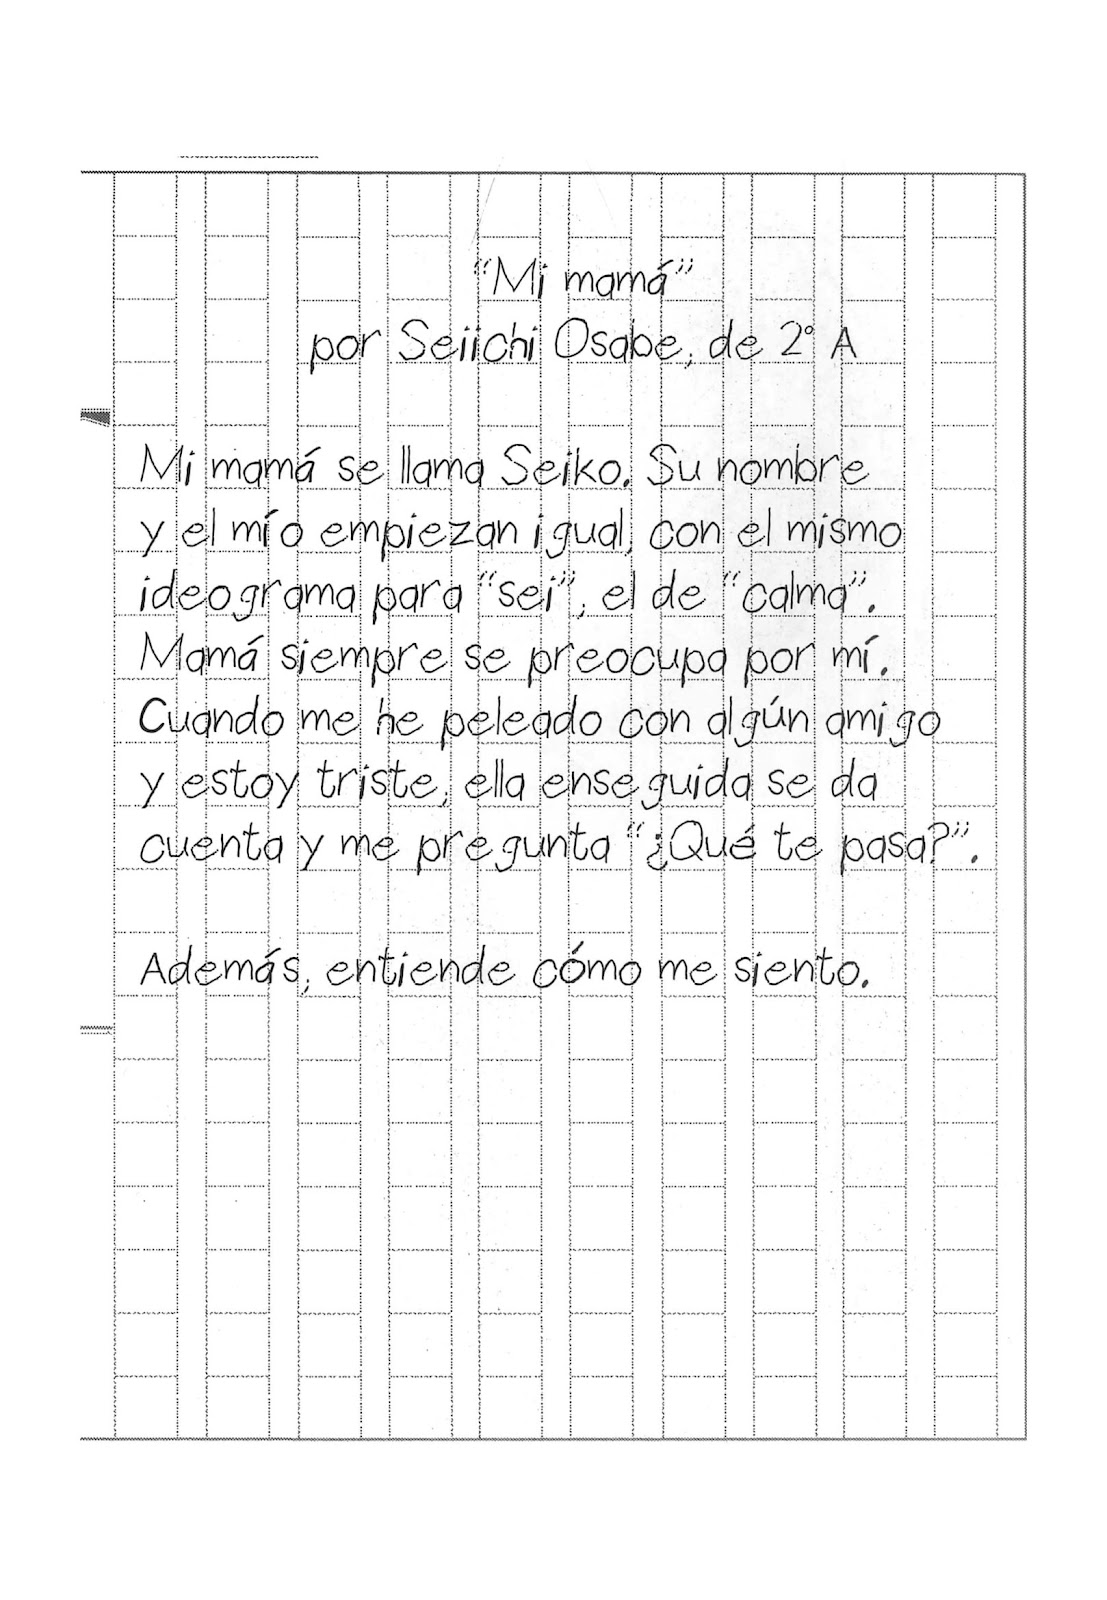 “Mi mamá”
por Seiichi Osabe, de 2º A
Mi mamá se llama Seiko. Su nombre
y el mío empiezan igual, con el mismo
ideograma para “sei”, el de “calma”.
Mamá siempre se preocupa por mí.
Cuando me he peleado con algún amigo
y estoy triste, ella enseguida se da
cuenta y me pregunta “¿Qué te pasa?”.
Además, entiende cómo me siento.